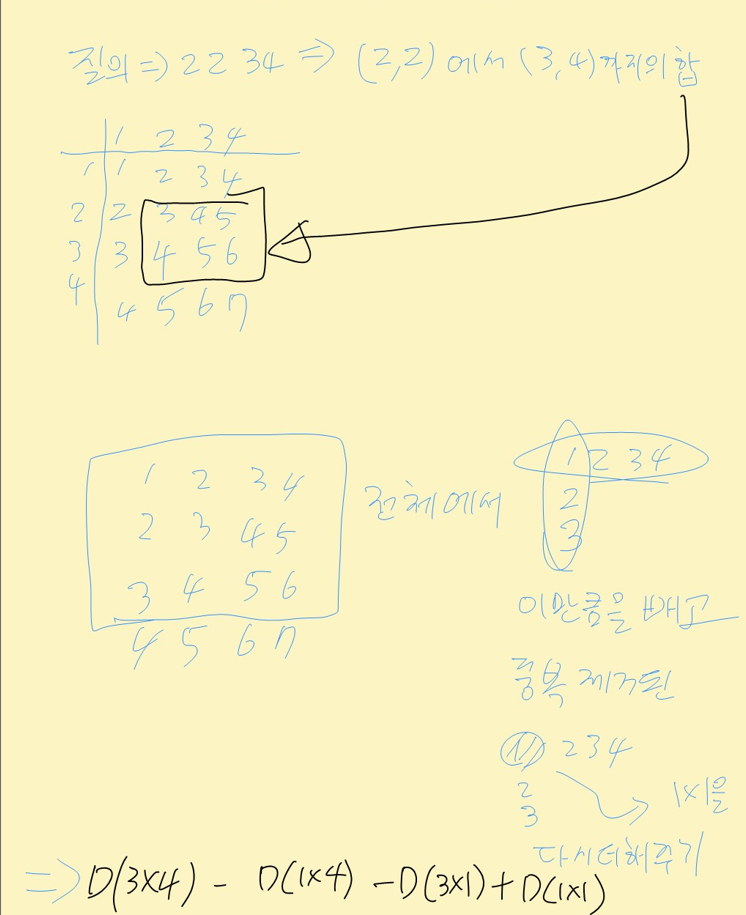 질의 => 2 2 3 4 => (2,2) 에서 (3,4)까지의 합
1 2 3 4
1 1 2 3 4
2 2 3 4 5
3 3 4 5 6
4 4 5 6 7
1 2 3 4
2 3 4 5
3 4 5 6
4 5 6 7
전체에서
1 2 3 4
2
3
이만큼을 빼고
중복 제거된
1 2 3 4
2
3
1x1을
다시더해주기
=> D(3x4) - D(1x4) - D(3x1) + D(1x1)